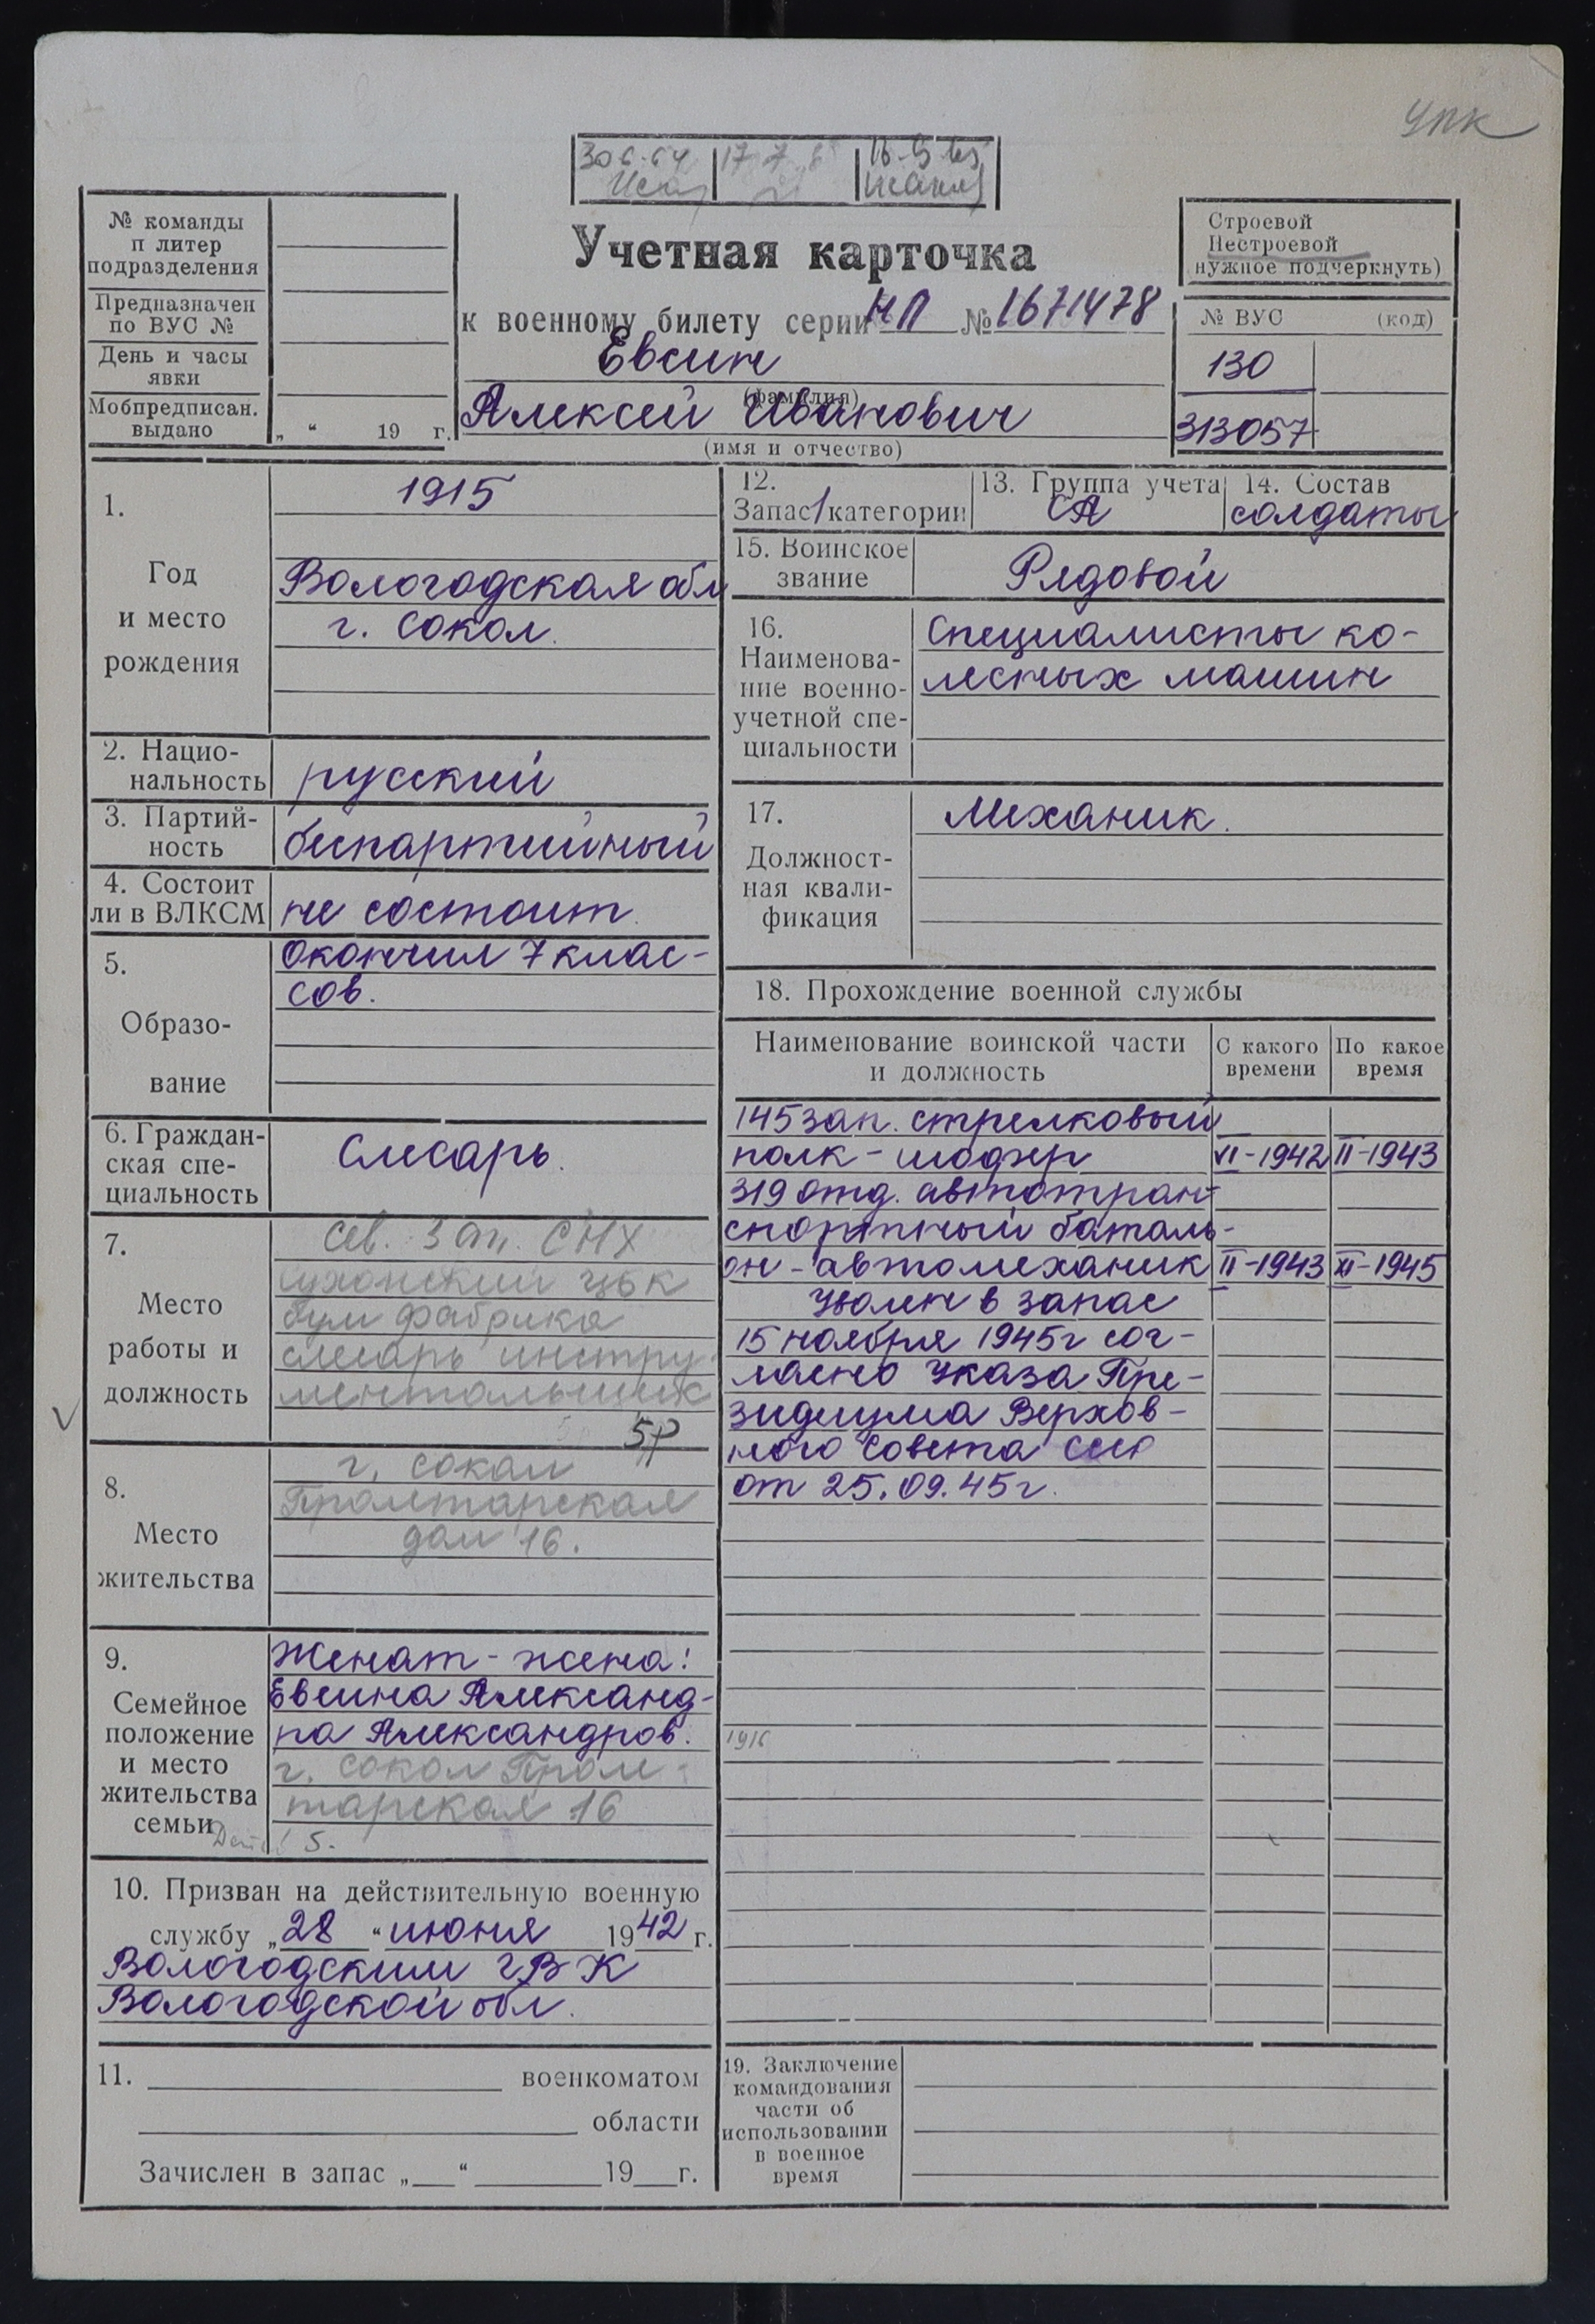 упк
30 6-64
17 7
16-9 65
№ команды
п литер
подразделения
Предназначен
по ВУС №
День и часы
явки
Мобпредписан.
выдано
„ “ 19 г.
Учетная карточка
к военному билету серии НП № 1671478
Евсин
(фамилия)
Алексей Иванович
(имя и отчество)
Строевой
Нестроевой
нужное подчеркнуть)
№ ВУС (код)
130
313057
1.
Год
и место
рождения
1915
Вологодская обл
г. Сокол.
2. Нацио-
нальность
русский
3. Партий-
ность
беспартийный
4. Состоит
ли в ВЛКСМ
не состоит
5.
Образо-
вание
Окончил 7 клас-
сов.
6. Граждан-
ская спе-
циальность
Слесарь.
7.
Место
работы и
должность
Сев. Зап. СНХ
Сухонский ЦБК
бум фабрика
слесарь инстру-
ментальщик
5р
8.
Место
жительства
г. Сокол
Пролетарская
дом 16.
9.
Семейное
положение
и место
жительства
семьи
Женат - жена:
Евсина Александ-
ра Александров.
г. Сокол Проле-
тарская 16
5.
10. Призван на действительную военную
службу „28 “ июня 1942 г.
Вологодским ГВК
Вологодской обл.
11. военкоматом
области
Зачислен в запас „ “ 19 г.
12.
Запас 1 категории
13. Группа учета
СА
14. Состав
солдаты
15. Воинское
звание
Рядовой
16.
Наименова-
ние военно-
учетной спе-
циальности
Специалисты ко-
лесных машин
17.
Должност-
ная квали-
фикация
Механик.
18. Прохождение военной службы
Наименование воинской части
и должность
С какого
времени
По какое
время
145 зап. стрелковый
полк - шофер VI-1942 II-1943
319 отд. автотран-
спортный баталь-
он - автомеханик II-1943 XI-1945
Уволен в запас
15 ноября 1945г сог-
ласно Указа Пре-
зидиума Верхов-
ного Совета СССР
от 25.09.45г.
1916
19. Заключение
командования
части об
использовании
в военное
время